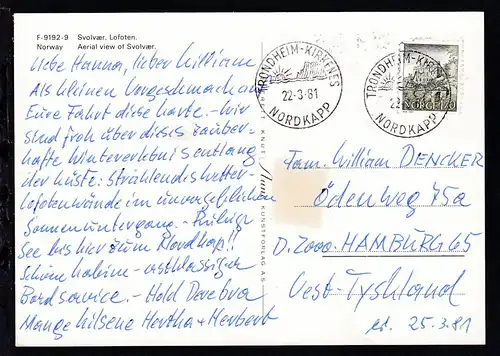 F-9192-9 Svolvær, Lofoten.
Norway Aerial view of Svolvær.
Liebe Hanna, lieber William
Als kleinen Vorgeschmack an
Eure Fahrt diese Karte. - Wir
sind froh über dieses zauber-
hafte Wintererlebnis entlang
der Küste: Strahlendes Wetter -
Lofotenwände im unvergeßlichen
Sonnenuntergang. - Ruhige
See bis hier zum Nordkap!!
Schöne Kabine - erstklassiger
Bordservice. - Hold
Mange hilsene Hertha + Herbert
KUNSTFORLAG A.S
TRONDHEIM-KIRKENES
22-3-81
NORDKAPP
TRONDHEIM-KIRKENES
22
NORDKAPP
NORGE 110
Fam. William DENCKER
Ödenweg 45a
D. 2000 HAMBURG 65
Vest-Tyskland
25.3.81